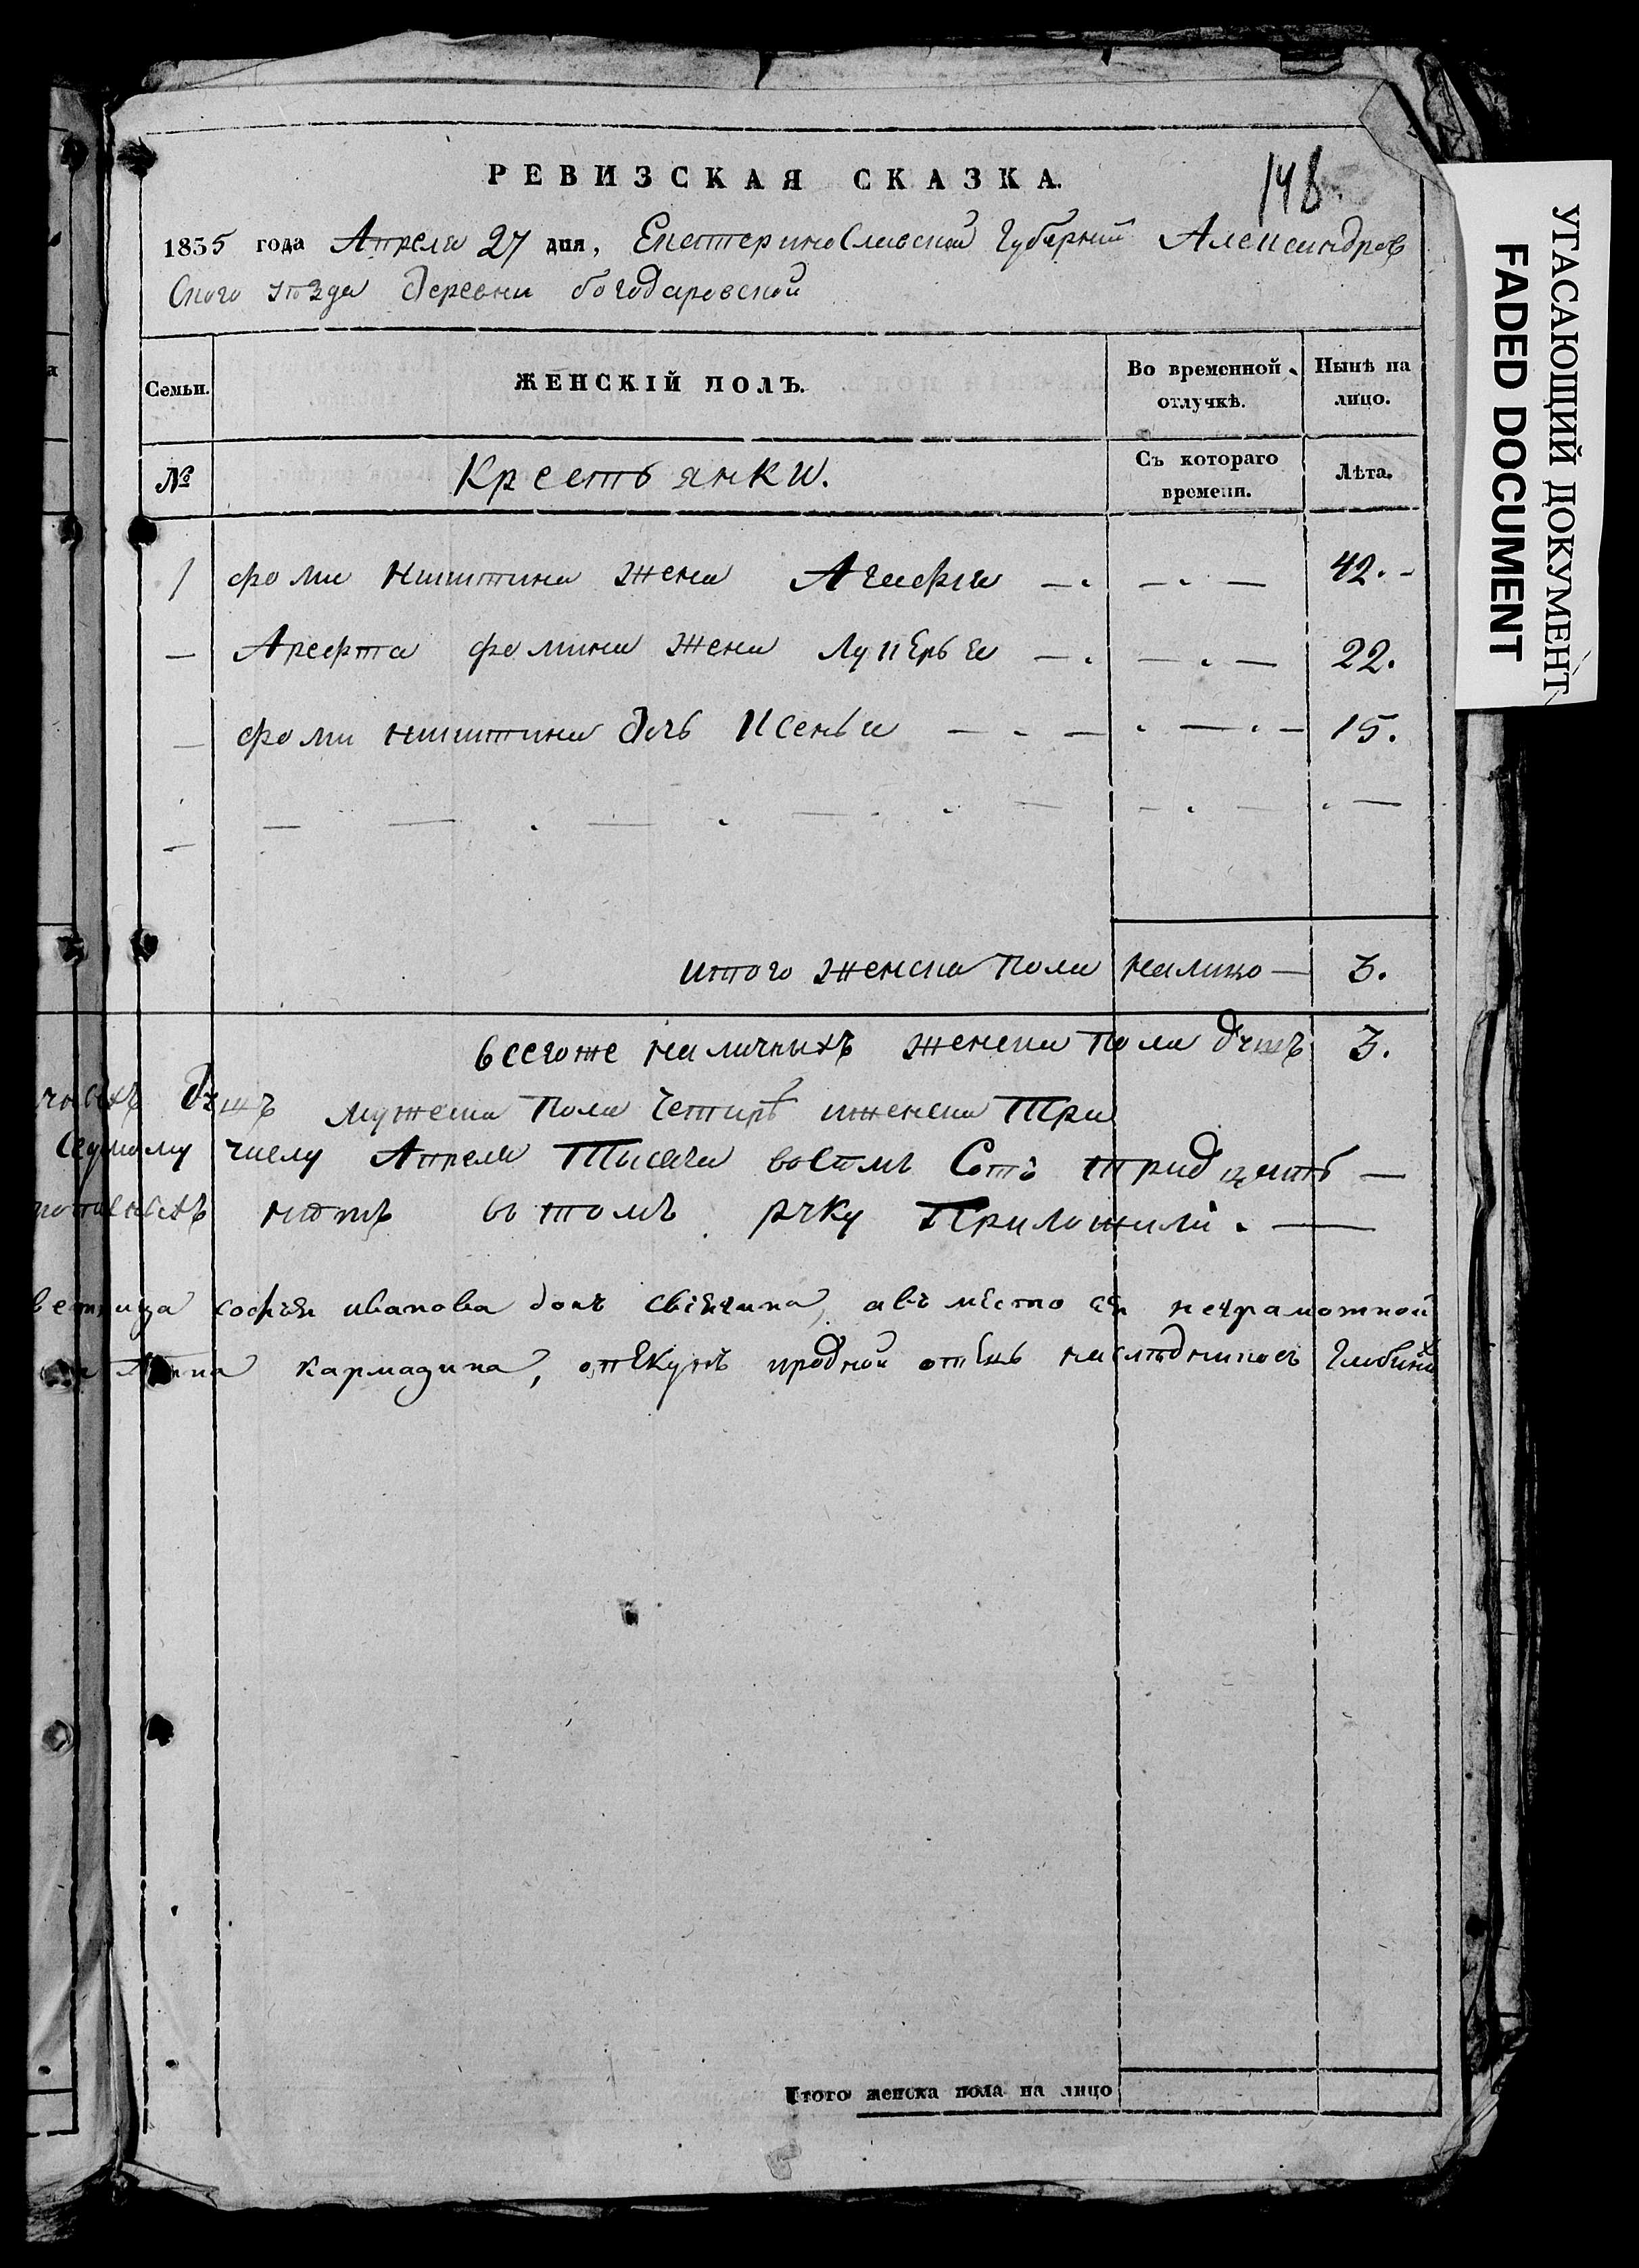 РЕВИЗСКАЯ СКАЗКА.
146.
1835 года Апреля 27 дня, Екатеринославской Губерній Александров
ского уѣзда деревни богодаровской
Семьи.
ЖЕНСКІЙ ПОЛЪ.
Во временной отлучкѣ.
Нынѣ на лицо.
№
Крестьянки.
Съ котораго времени.
Лѣта.
1 фоми никитина жена Агафія — . — . — 42. -
— Арефта фомина жена Лукерья — . — . — 22.
— фоми никитина дочь Ксенья — . — . — . — 15.
итого женска пола налицо — 3.
всегоже наличныхъ женска пола душъ 3.
душъ мужеска пола четирѣ иженска Три
седмому числу Апреля Тысяча восемъ Сотъ тридцать —
нѣтъ в томъ руку Приложили. —
софья иванова дочь свѣчина, авъ место ея неграмотной
кармазина, опекунъ иродной отецъ наследниковъ
Итого женска пола на лицо
УГАСАЮЩИЙ ДОКУМЕНТ
FADED DOCUMENT